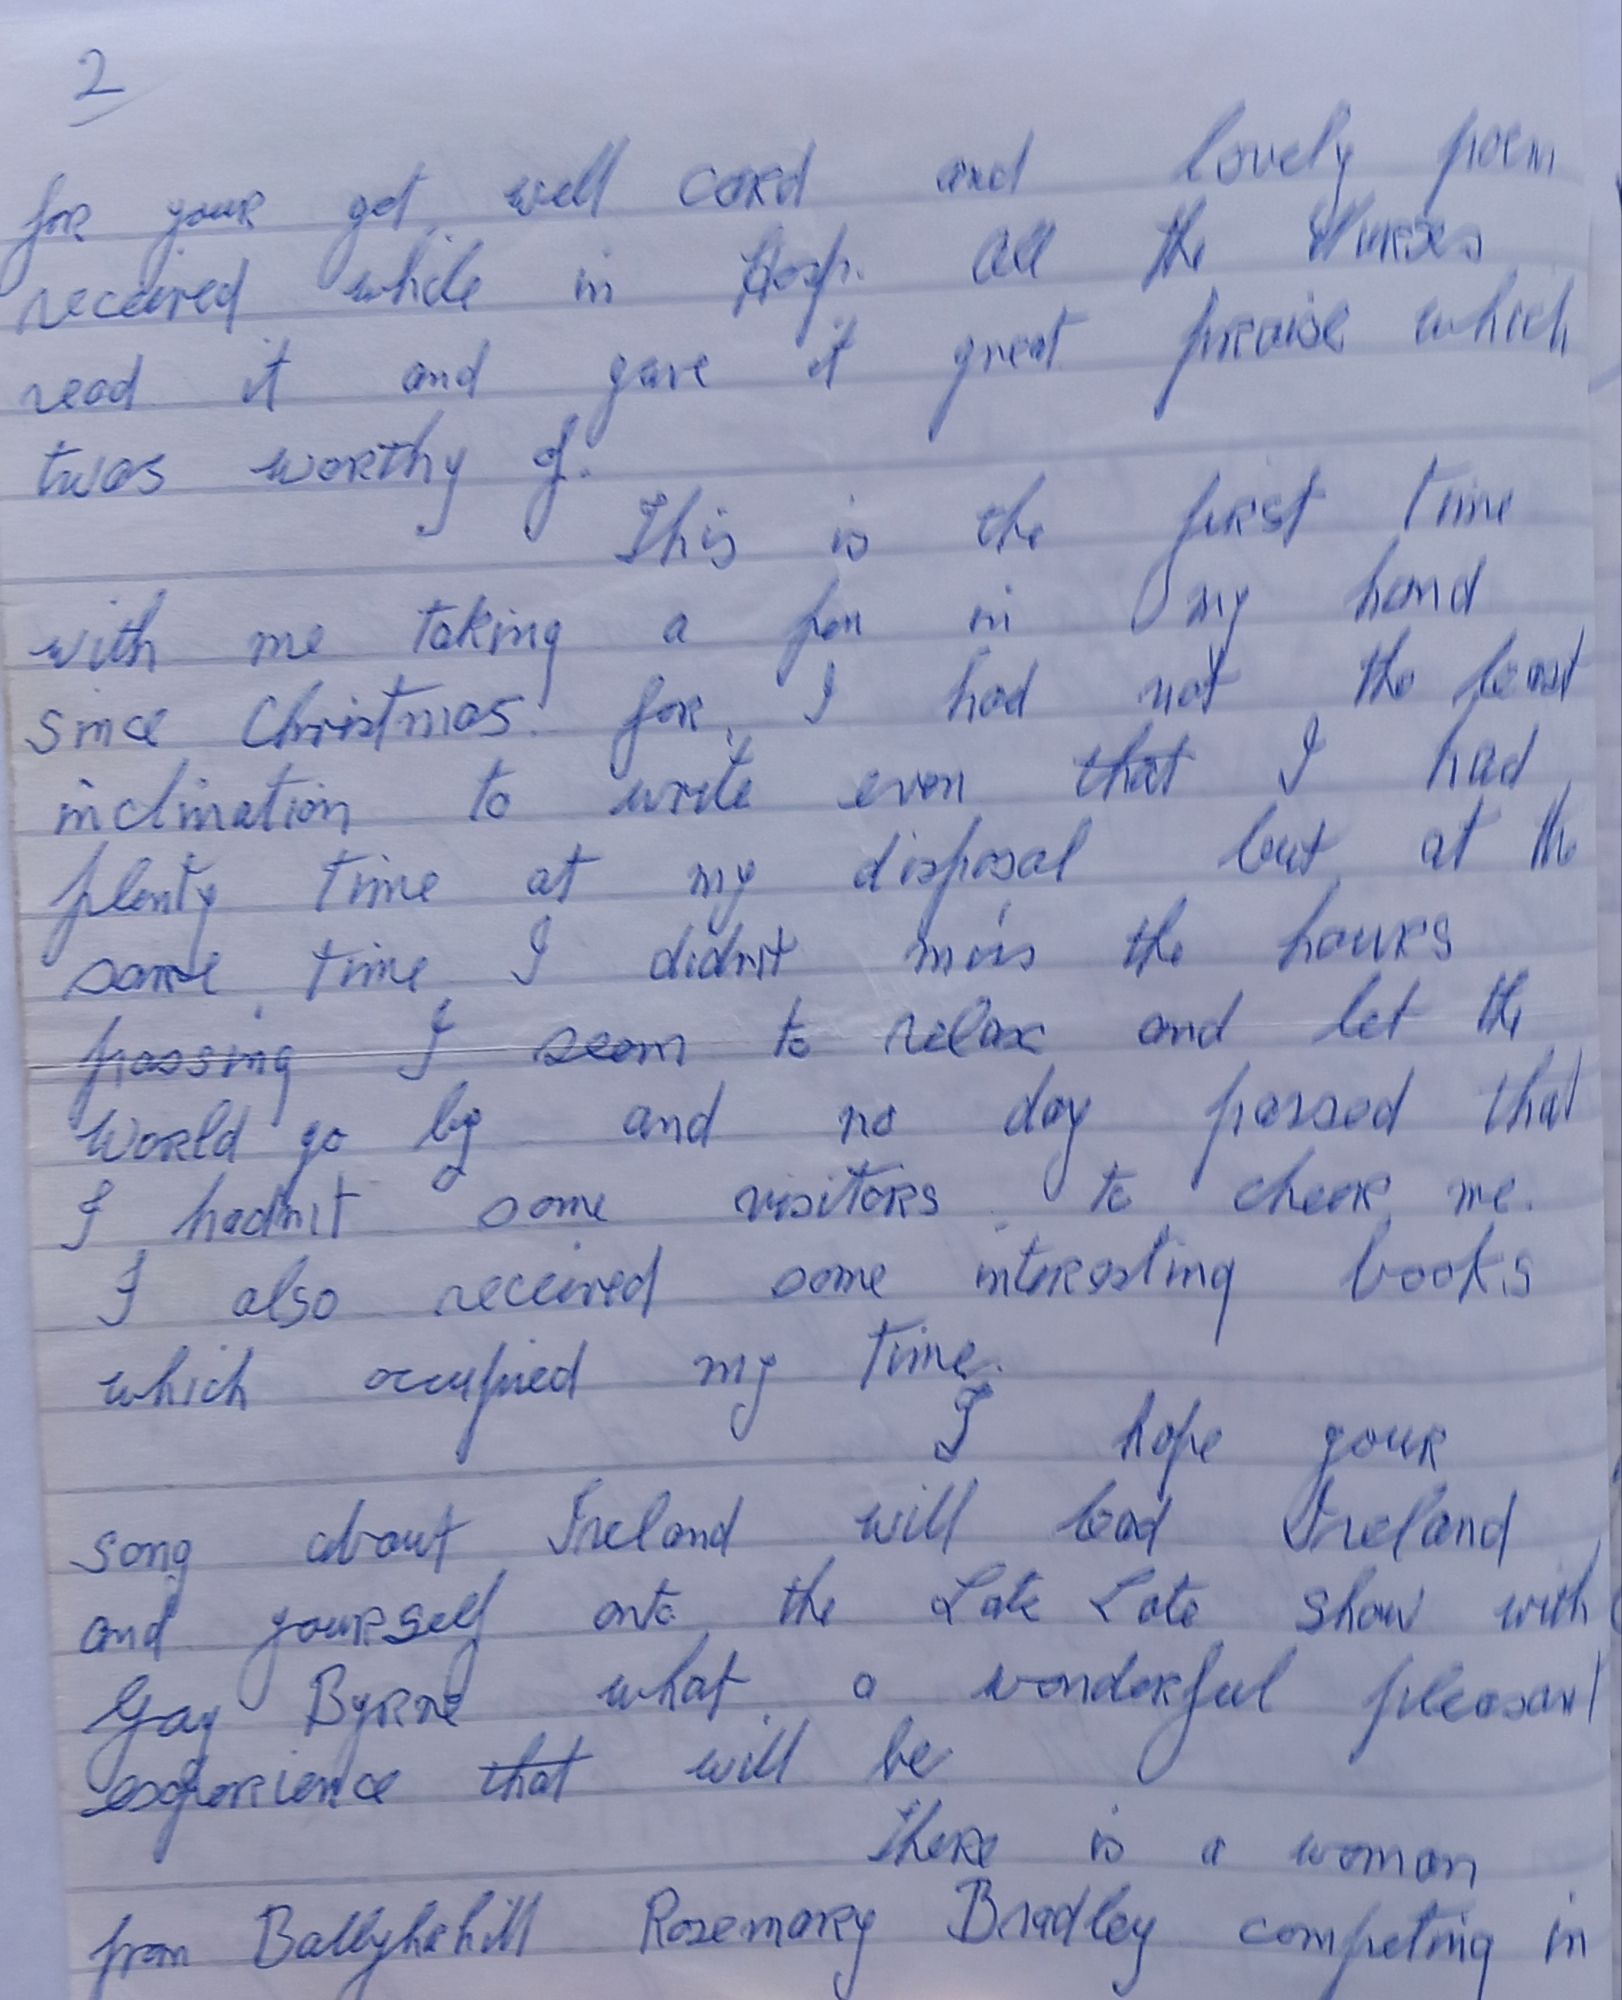 2
for your get well card and lovely poem
received while in Hosp. All the Nurses
read it and gave it great praise which
twas worthy of.
This is the first time
with me taking a pen in my hand
since Christmas. for I had not the least
inclination to write even that I had
plenty time at my disposal but at the
same time I didn't miss the hours
passing I seem to relax and let the
World go by and no day passed that
I hadn't some visitors to cheer me.
I also received some interesting books
which occupied my time.
I hope your
song about Ireland will lead Ireland
and yourself onto the Late Late Show with
Gay Byrne what a wonderful pleasant
experience that will be
There is a woman
from Ballyhahill Rosemary Bradley competing in